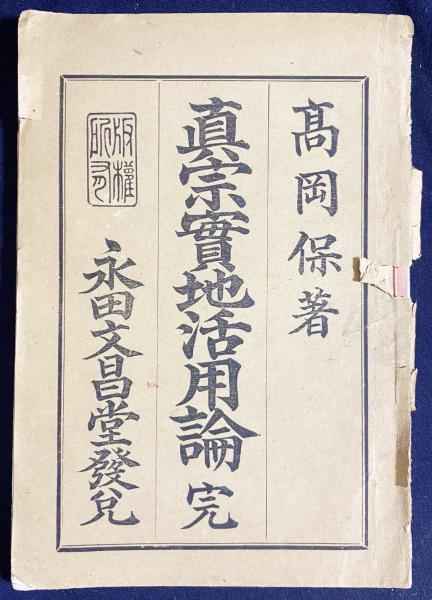 髙岡保著
真宗實地活用論 完
版權所有
永田文昌堂發兌